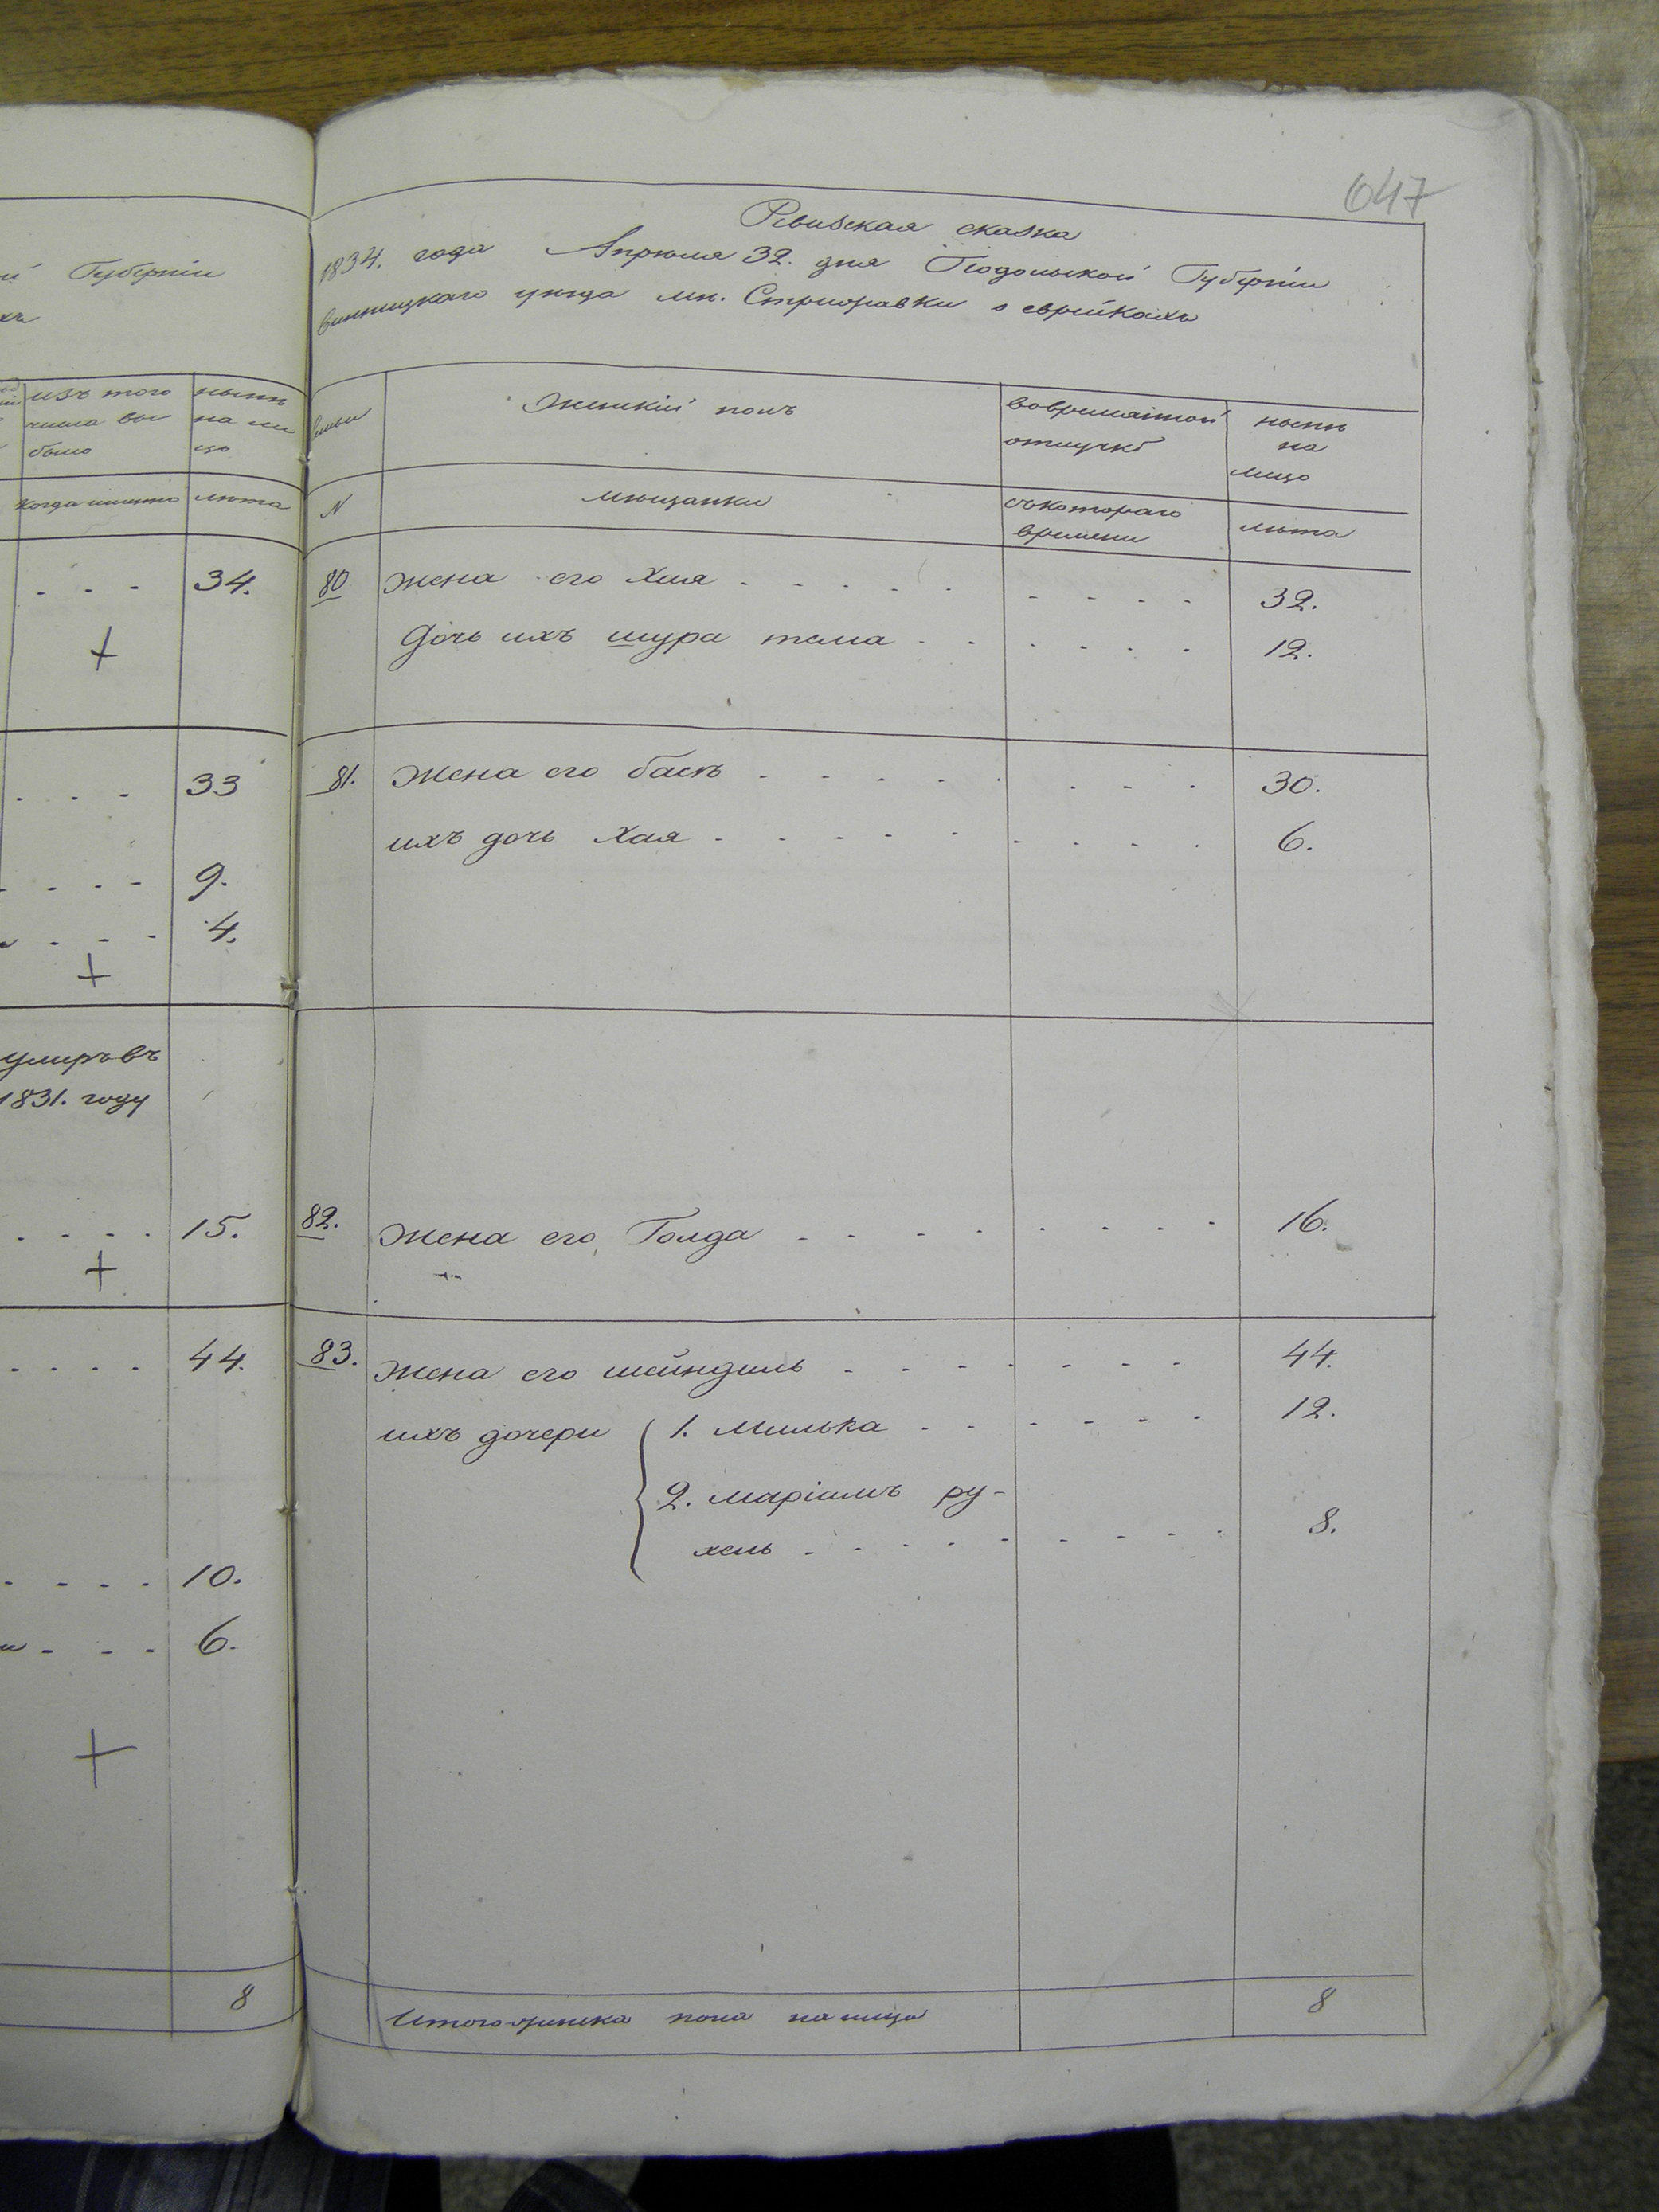 й Губернiи
хъ
изъ того
числа вы
было
нынѣ
на ли
цо
когда имянно
лѣта
. . . 34.
+
. . . 33
. . . . 9.
. . . 4.
+
умеръ въ
1831. году
. . . . 15.
+
. . . . 44.
. . . . 10.
. . . 6.
+
8
647
Ревизская сказка
1834. года Апрѣля 32. дня Подольской Губернiи
винницкаго уѣзда мѣ. Стрижавки о еврейкахъ
семьи
Женскiй полъ
во временной
отлучкѣ
нынѣ
на
лицо
N
мѣщанки
съ котораго
времени
лѣта
80 Жена его Хая . . . . . . . . . 32.
Дочь ихъ шура тема . . . . . . 12.
81. Жена его бася . . . . . . . . 30.
ихъ дочь Хая . . . . . . . . . 6.
82. Жена его Голда . . . . . . . . 16.
83. Жена его шейндиль . . . . . . . 44.
ихъ дочери 1. Милька . . . . . . 12.
2. марiамъ ру-
хель . . . . . . . . 8.
Итого женска пола налицо 8